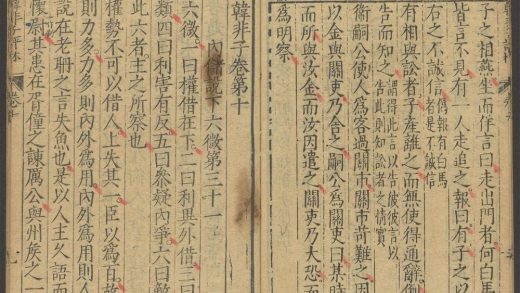 子之相燕坐而佯言曰走出門者何白馬
皆言不見有一人走追之報曰有子之以
右之不誠信偽報有白馬者是不誠信
有相與訟者子產離之而無使得通辭倒
告而知之謂得此言以告彼彼言以告此則知訟者之情實
衛嗣公使人為客過關市關市苛難之因
以金與關吏乃舍之嗣公為關吏曰某時
而所與汝金而汝因遣之關吏乃大恐而
為明察
韓非子卷第十
內儲說下六微第三十一
六微一曰權借在下二曰利異外借三曰
類四曰利害有反五曰參疑內爭六曰敵
此六者主之所察也
權勢不可以借人上失其一臣以為百故
則力多力多則內外為用內外為用則人
說在老聃之言失魚也是以人主久語而
懷尉其患在胥僮之諫厲公與州侯之一
卷十